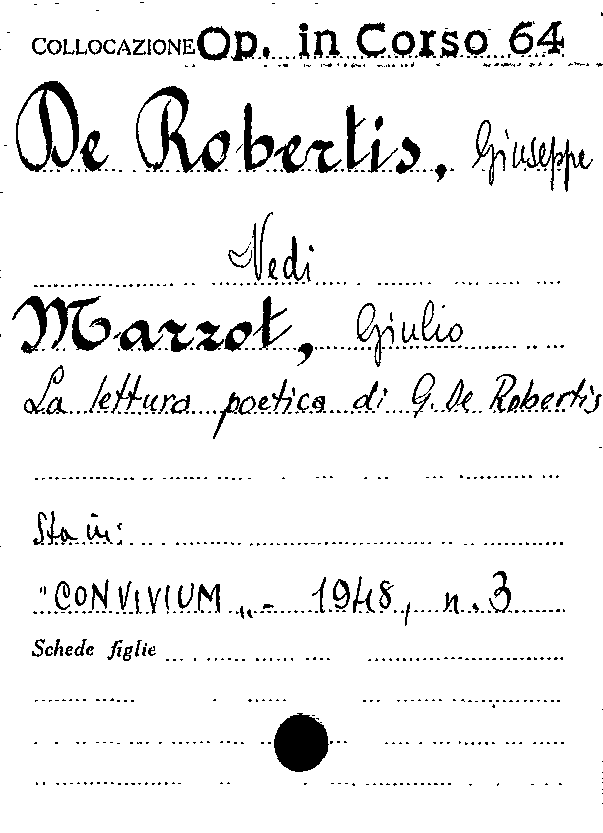 COLLOCAZIONE Op. in Corso 64
De Robertis, Giuseppe
Vedi
Marzot, Giulio
La lettura poetica di G. De Robertis
Sta in:
"CONVIVIUM„ - 1948, n. 3
Schede figlie